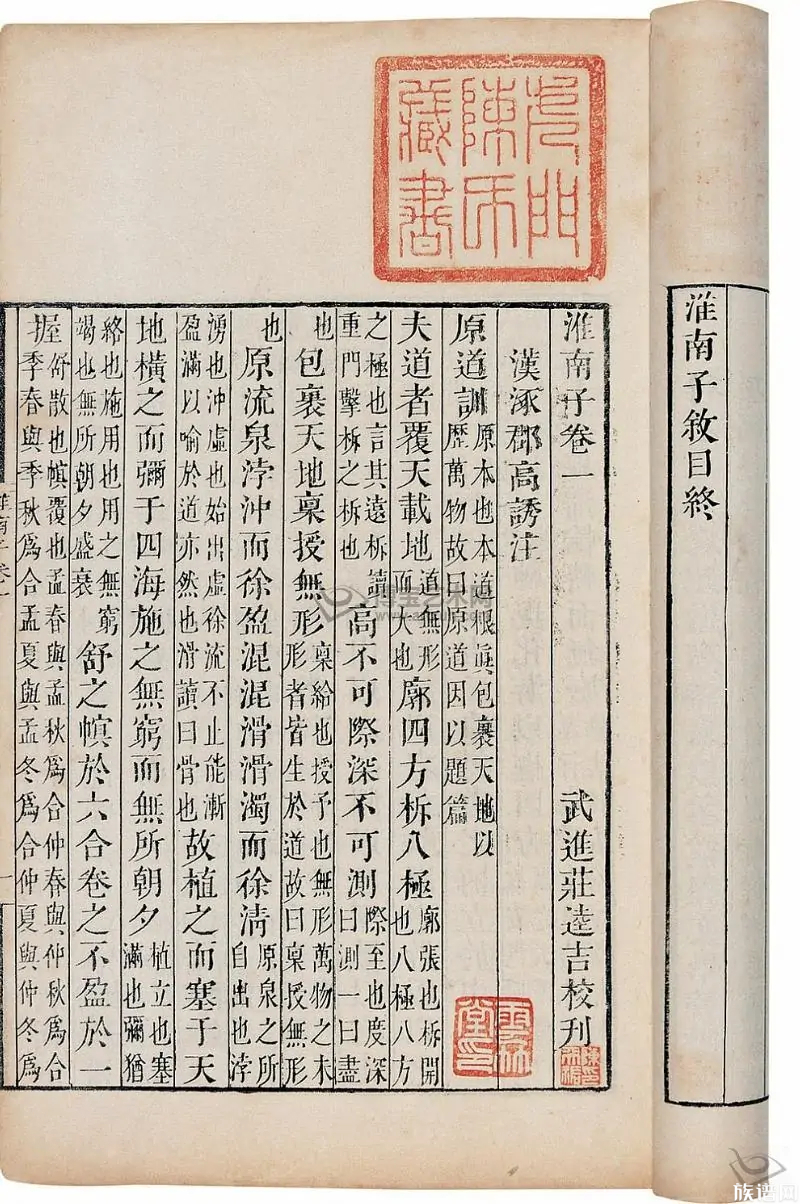 淮南子敘目終
陳氏藏書
淮南子卷一 武進莊逵吉校刊
漢涿郡高誘注
原道訓 原本也本道根眞包裹天地以歷萬物故曰原道因以題篇
夫道者覆天載地 道無形而大也 廓四方柝八極 廓張也柝開也八極八方
之極也言其遠柝讀重門擊柝之柝也 高不可際深不可測 際至也度深曰測一曰盡
也 包裹天地稟授無形 稟給也授予也無形萬物之未形者皆生於道故曰稟授無形
也 原流泉浡沖而徐盈混混滑滑濁而徐清 原泉之所自出也浡
湧也沖虛也始出虛徐流不止能漸盈滿以喻於道亦然也滑讀曰骨也 故植之而塞于天
地橫之而彌于四海施之無窮而無所朝夕 植立也塞滿也彌猶
絡也施用也用之無窮竭也無所朝夕盛衰 舒之幎於六合卷之不盈於一
握 舒散也幎覆也孟春與孟秋爲合仲春與仲秋爲合季春與季秋爲合孟夏與孟冬爲合仲夏與仲冬爲
博宝艺术网
族谱网